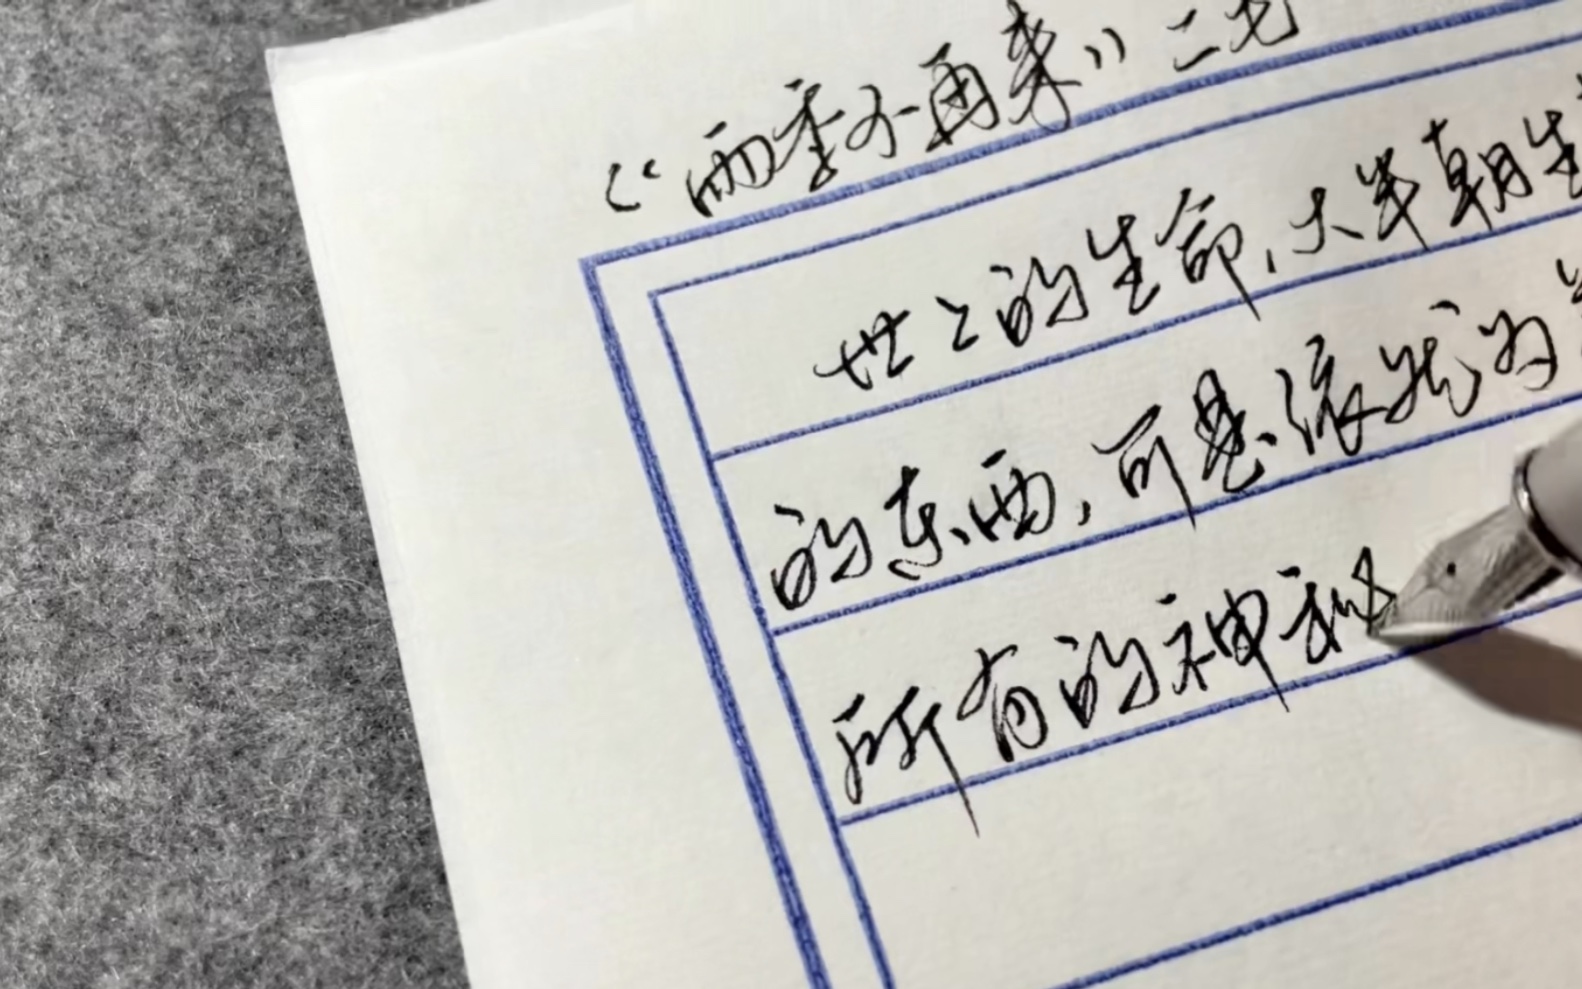 《雨季不再来》三毛
世上的生命，大半朝生
的东西，可是依然为
所有的神秘